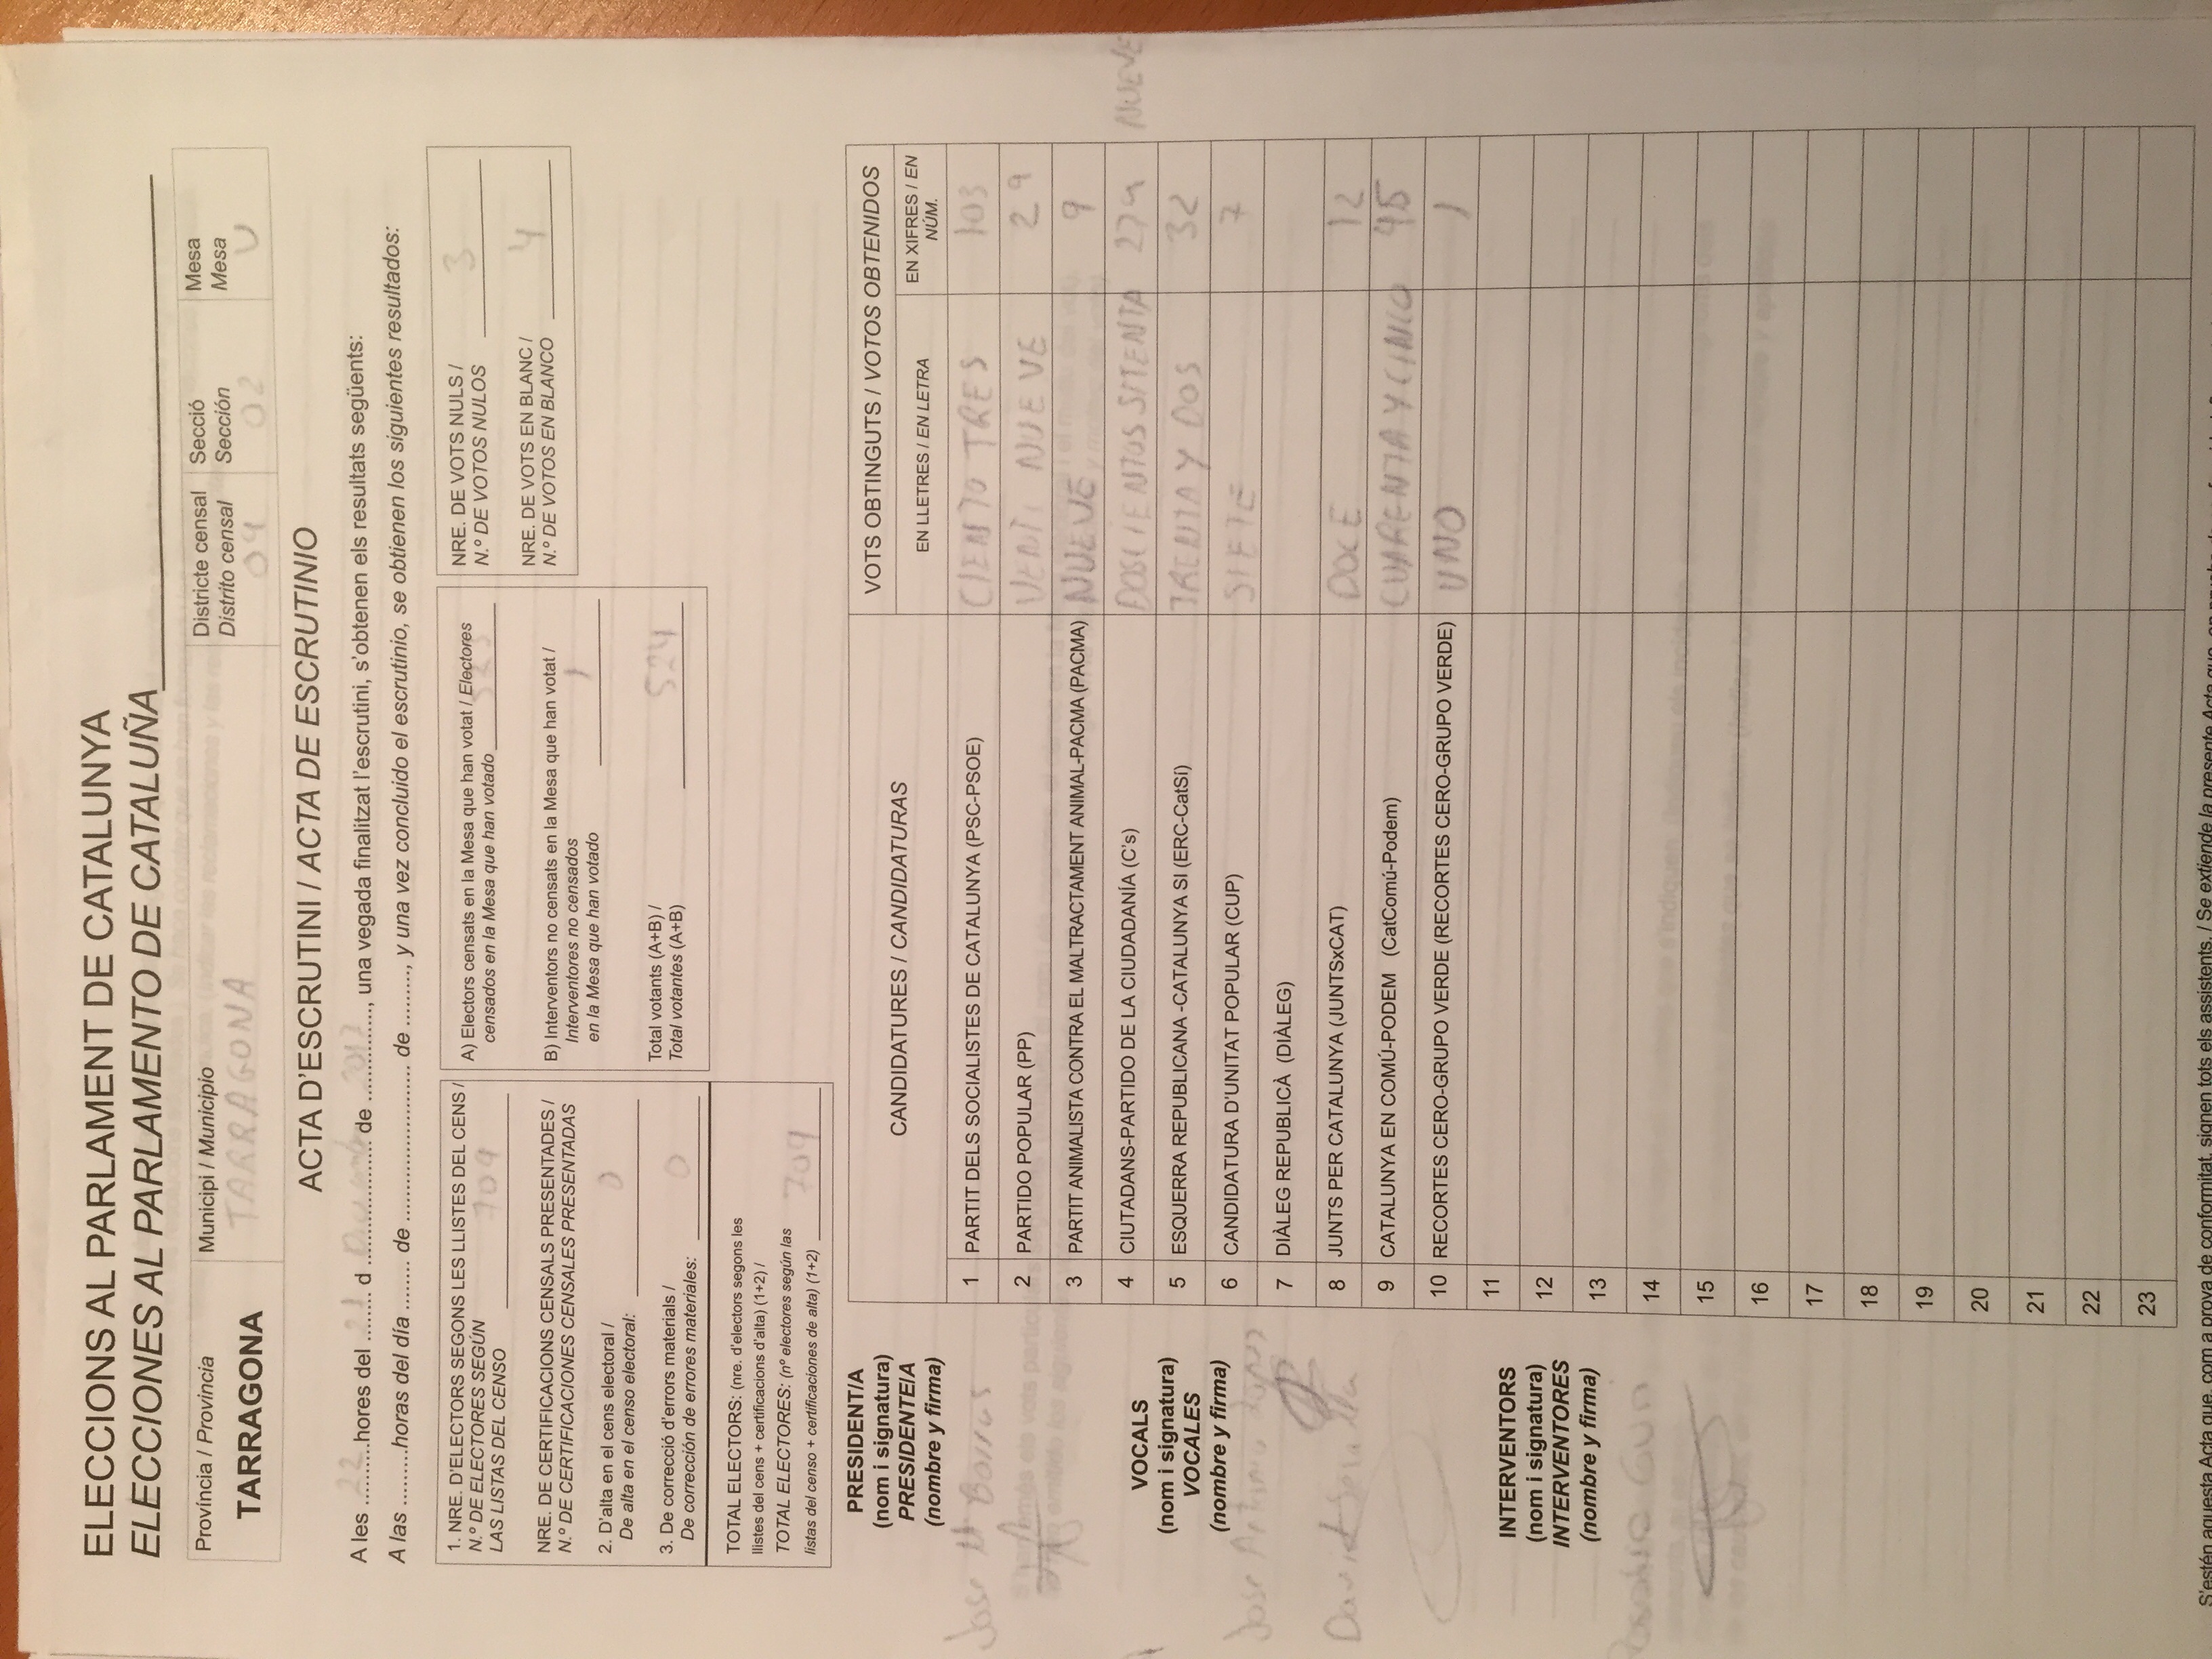 ELECCIONS AL PARLAMENT DE CATALUNYA
ELECCIONES AL PARLAMENTO DE CATALUÑA
Província / Provincia
TARRAGONA
Municipi / Municipio
TARRAGONA
Districte censal
Distrito censal
04
Secció
Sección
02
Mesa
Mesa
U
ACTA D'ESCRUTINI / ACTA DE ESCRUTINIO
A les 22 hores del 21 d Diciembre de 2017, una vegada finalitzat l'escrutini, s'obtenen els resultats següents:
A las .........horas del día ........ de .......................... de ........., y una vez concluido el escrutinio, se obtienen los siguientes resultados:
1. NRE. D'ELECTORS SEGONS LES LLISTES DEL CENS /
N.º DE ELECTORES SEGÚN
LAS LISTAS DEL CENSO 709
NRE. DE CERTIFICACIONS CENSALS PRESENTADES /
N.º DE CERTIFICACIONES CENSALES PRESENTADAS
2. D'alta en el cens electoral /
De alta en el censo electoral: 0
3. De correcció d'errors materials /
De corrección de errores materiales: 0
TOTAL ELECTORS: (nre. d'electors segons les
llistes del cens + certificacions d'alta) (1+2) /
TOTAL ELECTORES: (nº electores según las
listas del censo + certificaciones de alta) (1+2) 709
A) Electors censats en la Mesa que han votat / Electores
censados en la Mesa que han votado 523
B) Interventors no censats en la Mesa que han votat /
Interventores no censados
en la Mesa que han votado 1
Total votants (A+B) /
Total votantes (A+B) 524
NRE. DE VOTS NULS /
N.º DE VOTOS NULOS 3
NRE. DE VOTS EN BLANC /
N.º DE VOTOS EN BLANCO 4
PRESIDENT/A
(nom i signatura)
PRESIDENTE/A
(nombre y firma)
Jose Mª Borras
VOCALS
(nom i signatura)
VOCALES
(nombre y firma)
Jose Antonio Lopez
David
INTERVENTORS
(nom i signatura)
INTERVENTORES
(nombre y firma)
CANDIDATURES / CANDIDATURAS
VOTS OBTINGUTS / VOTOS OBTENIDOS
EN LLETRES / EN LETRA
EN XIFRES / EN
NÚM.
1 PARTIT DELS SOCIALISTES DE CATALUNYA (PSC-PSOE) CIENTO TRES 103
2 PARTIDO POPULAR (PP) VENTI NUEVE 29
3 PARTIT ANIMALISTA CONTRA EL MALTRACTAMENT ANIMAL-PACMA (PACMA) NUEVE 9
4 CIUTADANS-PARTIDO DE LA CIUDADANÍA (C's) DOSCIENTOS SITENTA 279 NUEVE
5 ESQUERRA REPUBLICANA -CATALUNYA SI (ERC-CatSí) TRENTA Y DOS 32
6 CANDIDATURA D'UNITAT POPULAR (CUP) SIETE 7
7 DIÀLEG REPUBLICÀ (DIÀLEG)
8 JUNTS PER CATALUNYA (JUNTSxCAT) DOCE 12
9 CATALUNYA EN COMÚ-PODEM (CatComú-Podem) CUARENTA Y CINCO 45
10 RECORTES CERO-GRUPO VERDE (RECORTES CERO-GRUPO VERDE) UNO 1
11
12
13
14
15
16
17
18
19
20
21
22
23
S'estén aquesta Acta que, com a prova de conformitat, signen tots els assistents. / Se extiende la presente Acta que, en prueba de